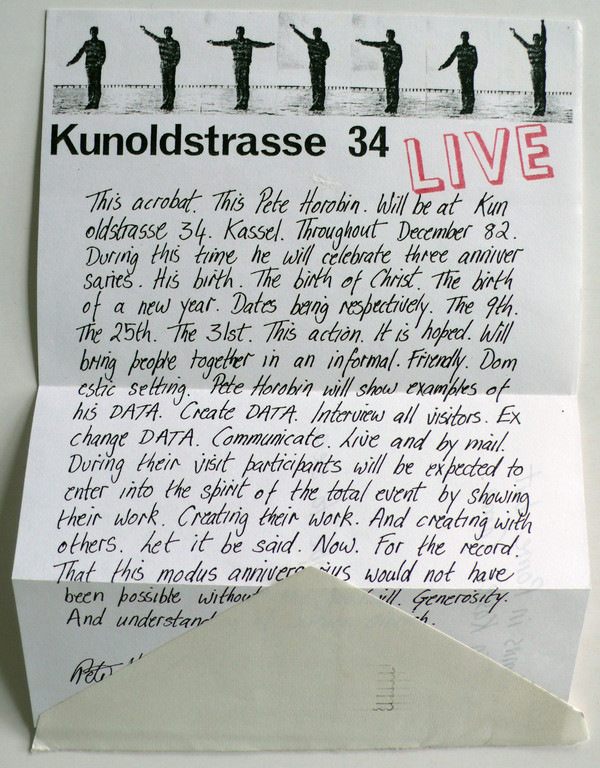 Kunoldstrasse 34 LIVE
This acrobat. This Pete Horobin. Will be at Kun
oldstrasse 34. Kassel. Throughout December 82.
During this time he will celebrate three anniver
saries. His birth. The birth of Christ. The birth
of a new year. Dates being respectively. The 9th.
The 25th. The 31st. This action. It is hoped. Will
bring people together in an informal. Friendly. Dom
estic setting. Pete Horobin will show examples of
his DATA. Create DATA. Interview all visitors. Ex
change DATA. Communicate. Live and by mail.
During their visit participants will be expected to
enter into the spirit of the total event by showing
their work. Creating their work. And creating with
others. Let it be said. Now. For the record.
That this modus would not have
been possible without Generosity.
And
Pete